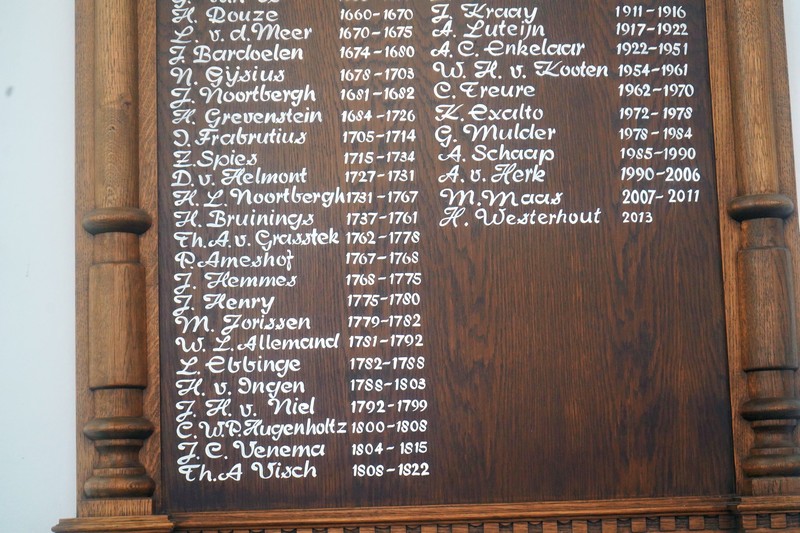 H. Douze 1660-1670
L. v. d. Meer 1670-1675
J. Bardoelen 1674-1680
N. Gÿsius 1678-1703
J. Noortbergh 1681-1682
H. Grevenstein 1684-1726
D. Frabrutius 1705-1714
Z. Spies 1715-1734
D. v. Helmont 1727-1731
H. L. Noortbergh 1731-1767
H. Bruinings 1737-1761
Th. A. v. Grasstek 1762-1778
P. Ameshof 1767-1768
J. Hemmes 1768-1775
J. Henry 1775-1780
M. Jorissen 1779-1782
W. L. Allemand 1781-1792
L. Ebbinge 1782-1788
H. v. Ingen 1788-1803
J. H. v. Niel 1792-1799
C. W. P. Hugenholtz 1800-1808
J. C. Venema 1804-1815
Th. A Visch 1808-1822
J. Kraay 1911-1916
A. Luteijn 1917-1922
A. C. Enkelaar 1922-1951
W. H. v. Kooten 1954-1961
C. Treure 1962-1970
K. Exalto 1972-1978
G. Mulder 1978-1984
A. Schaap 1985-1990
A. v. Herk 1990-2006
M. Maas 2007-2011
H. Westerhout 2013